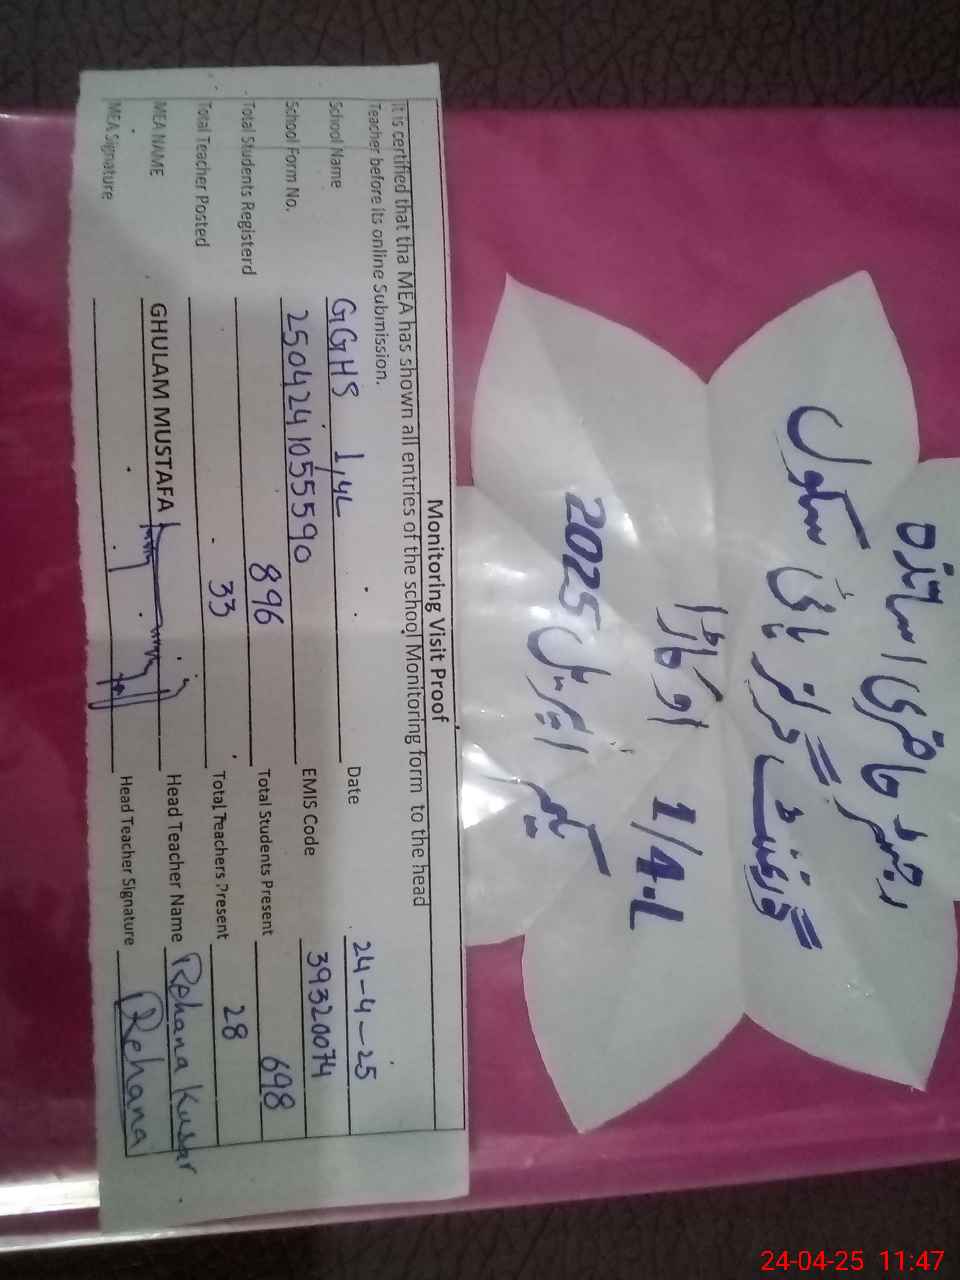 رجسٹر حاضری اساتذہ
گورنمنٹ گرلز ہائی سکول
1/4.L اوکاڑا
یکم اپریل 2025
Monitoring Visit Proof
It is certified that tha MEA has shown all entries of the school Monitoring form to the head
Teacher before its online Submission.
School Name GGHS 1/4L Date 24-4-25
School Form No. 25042410555590 EMIS Code 39320074
Total Students Registerd 896 Total Students Present 698
Total Teacher Posted 33 Total Teachers Present 28
MEA NAME GHULAM MUSTAFA Head Teacher Name Rehana Kusar
MEA Signature Head Teacher Signature Rehana
24-04-25 11:47